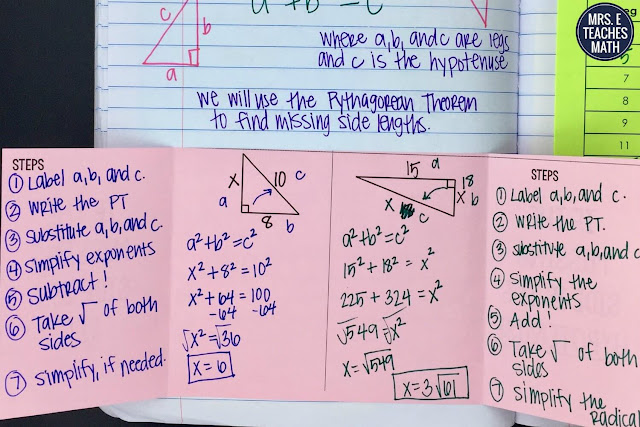 a² + b² = c²
c
b
a
where a, b, and c are legs
and c is the hypotenuse
we will use the Pythagorean Theorem
to find missing side lengths.
MRS. E
TEACHES
MATH
eg
5
7
8
9
11
STEPS
① Label a, b, and c.
② Write the PT
③ Substitute a, b, and c.
④ Simplify exponents
⑤ Subtract!
⑥ Take √ of both
sides
⑦ Simplify, if needed.
x 10 c
a
8 b
a² + b² = c²
x² + 8² = 10²
x² + 64 = 100
-64 -64
√x² = √36
x = 6
15 a
18
x b
x c
a² + b² = c²
15² + 18² = x²
225 + 324 = x²
√549 = √x²
x = √549
x = 3√61
STEPS
① Label a, b, and c.
② Write the PT.
③ Substitute a, b, and c
④ Simplify the
exponents
⑤ Add!
⑥ Take √ of both
sides
⑦ Simplify the
radical